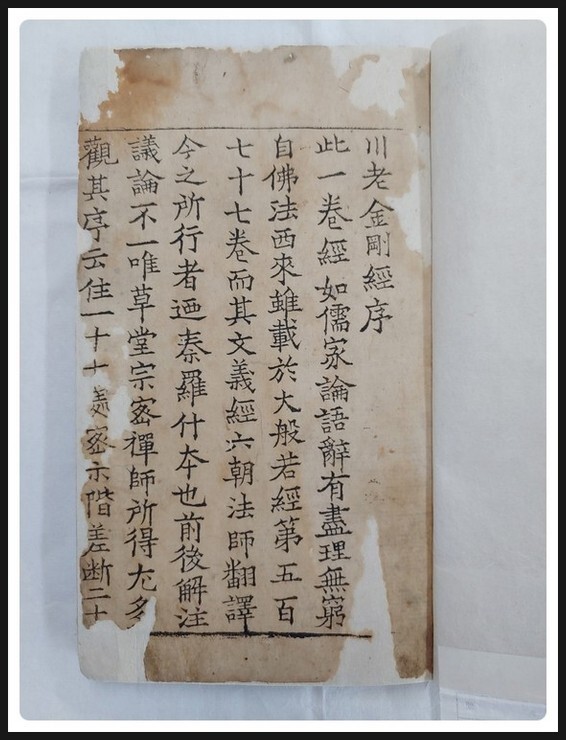 川老金剛經序
此一卷經如儒家論語辭有盡理無窮
自佛法西來雖載於大般若經第五百
七十七卷而其文義經六朝法師翻譯
今之所行者迺秦羅什本也前後解注
議論不一唯草堂宗密禪師所得尤多
觀其序云住一十十處密示階差断二十